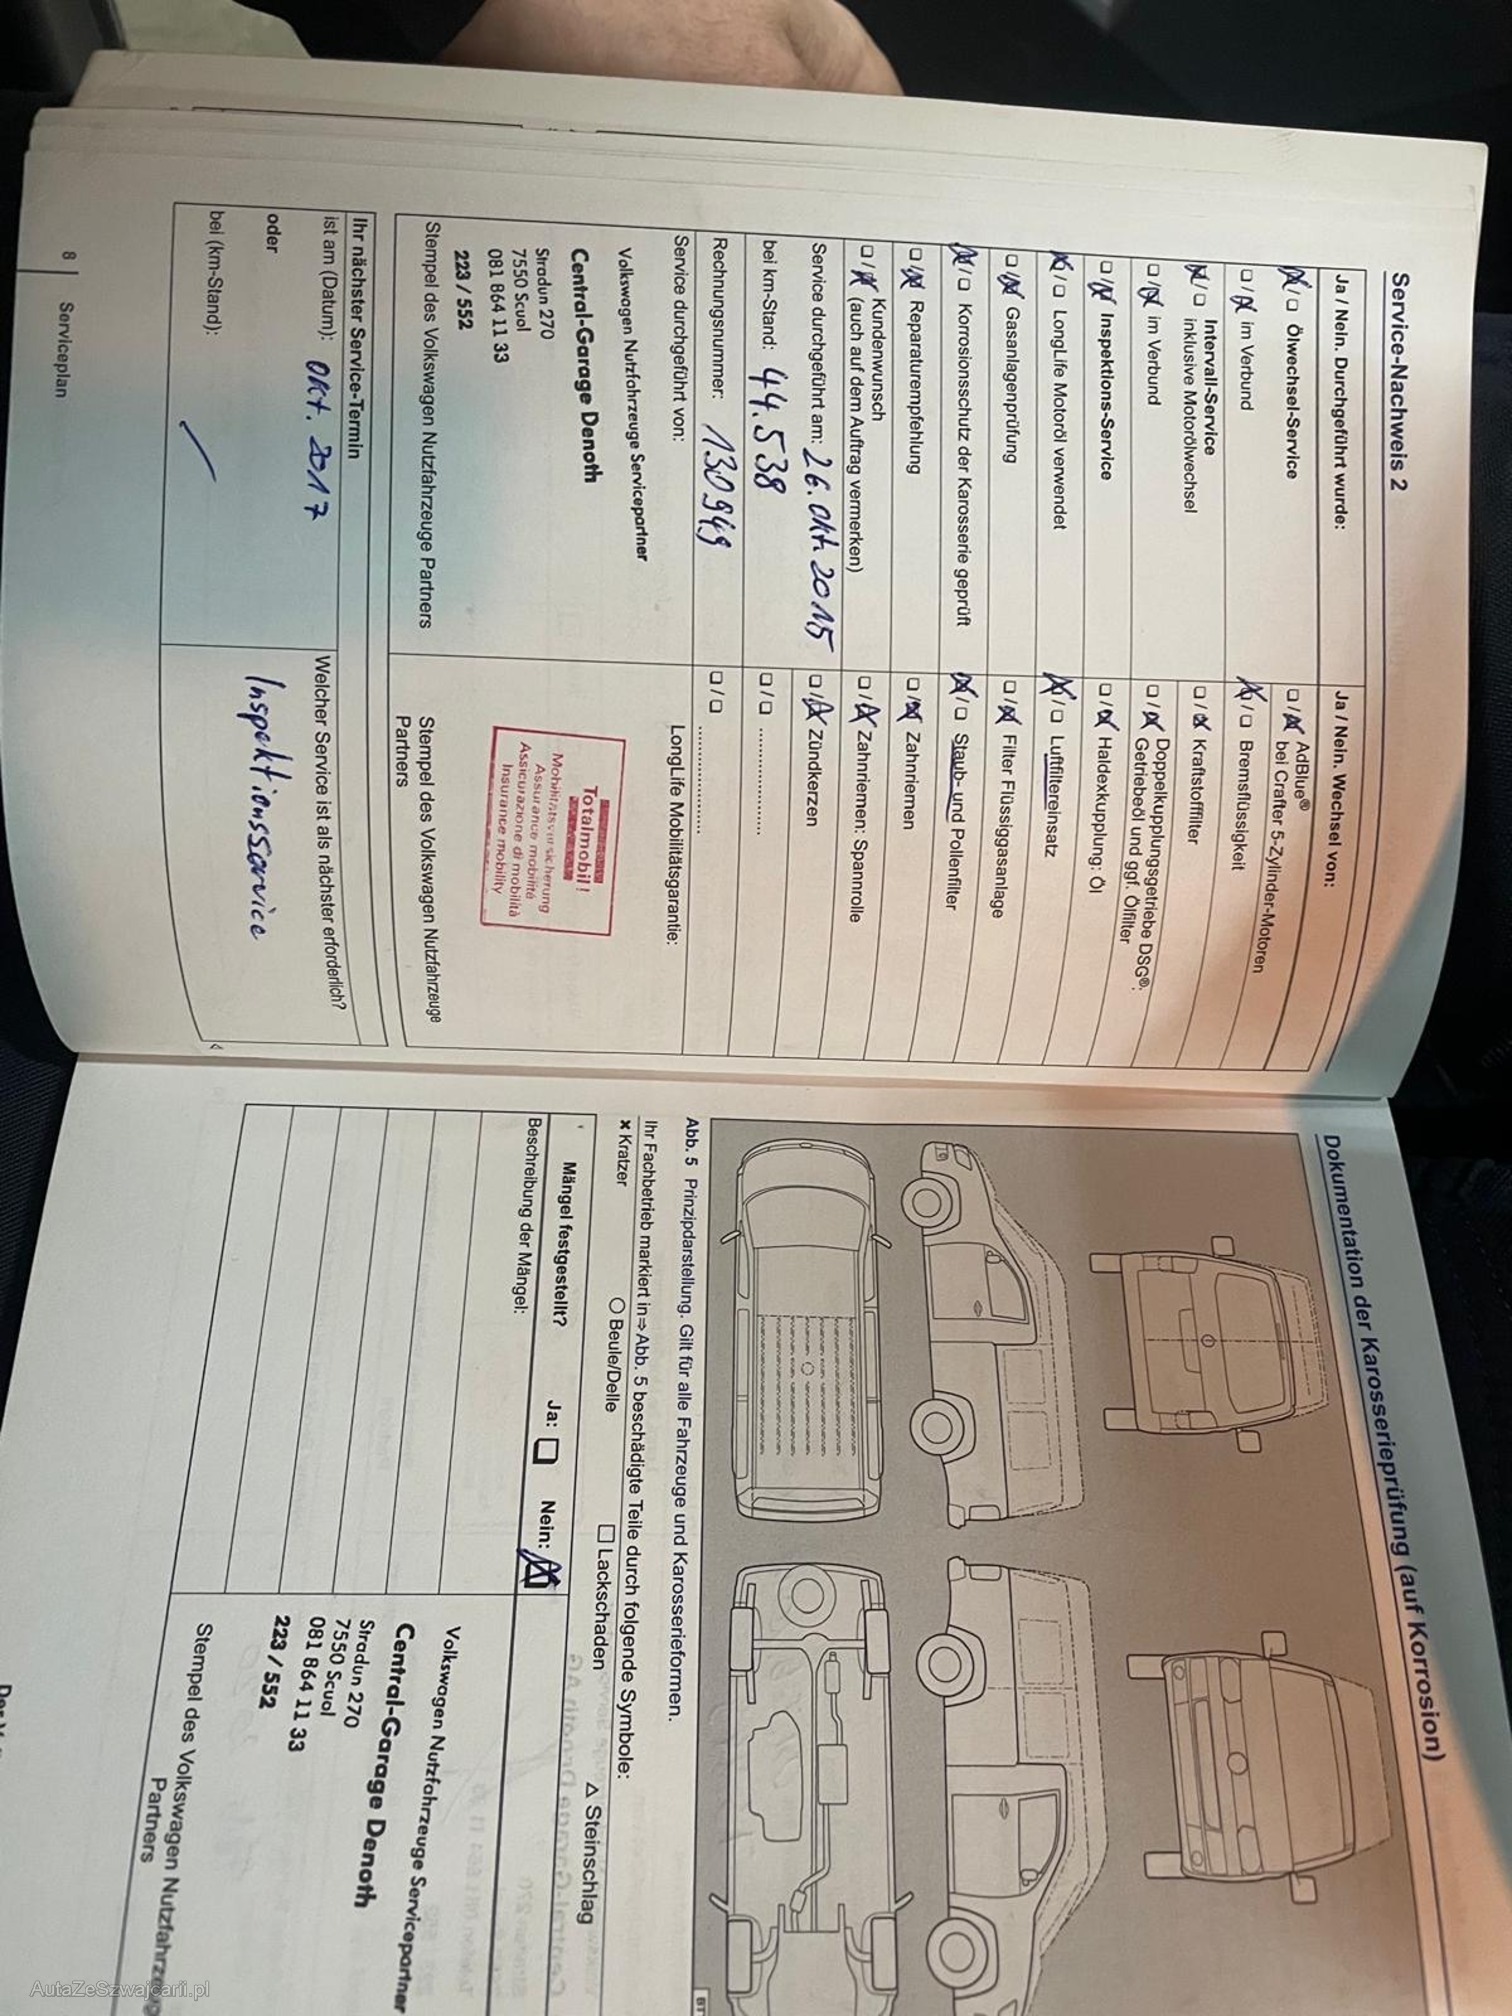 Service-Nachweis 2
Ja / Nein. Durchgeführt wurde:
☒ / ☐ Ölwechsel-Service
☐ / ☒ im Verbund
☒ / ☐ Intervall-Service
inklusive Motorölwechsel
☐ / ☒ im Verbund
☐ / ☒ Inspektions-Service
☒ / ☐ LongLife Motoröl verwendet
☐ / ☒ Gasanlagenprüfung
☒ / ☐ Korrosionsschutz der Karosserie geprüft
☐ / ☒ Reparaturempfehlung
☐ / ☒ Kundenwunsch
(auch auf dem Auftrag vermerken)
Service durchgeführt am: 26. Okt. 2015
bei km-Stand: 44.538
Rechnungsnummer: 130949
Service durchgeführt von:
Volkswagen Nutzfahrzeuge Servicepartner
Central-Garage Denoth
Stradun 270
7550 Scuol
081 864 11 33
223 / 552
Stempel des Volkswagen Nutzfahrzeuge Partners
Ja / Nein. Wechsel von:
☐ / ☒ AdBlue®
bei Crafter 5-Zylinder-Motoren
☒ / ☐ Bremsflüssigkeit
☐ / ☒ Kraftstofffilter
☐ / ☒ Doppelkupplungsgetriebe DSG®:
Getriebeöl und ggf. Ölfilter
☐ / ☒ Haldexkupplung: Öl
☒ / ☐ Luftfiltereinsatz
☐ / ☒ Filter Flüssiggasanlage
☒ / ☐ Staub- und Pollenfilter
☐ / ☒ Zahnriemen
☐ / ☒ Zahnriemen: Spannrolle
☐ / ☒ Zündkerzen
☐ / ☐ ....................
☐ / ☐ ....................
LongLife Mobilitätsgarantie:
Totalmobil!
Mobilitätsversicherung
Assurance mobilité
Assicurazione di mobilità
Insurance mobility
Stempel des Volkswagen Nutzfahrzeuge
Partners
Ihr nächster Service-Termin
ist am (Datum): Okt. 2017
oder
bei (km-Stand):
Welcher Service ist als nächster erforderlich?
Inspektionsservice
8 Serviceplan
Dokumentation der Karosserieprüfung (auf Korrosion)
Abb. 5 Prinzipdarstellung. Gilt für alle Fahrzeuge und Karosserieformen.
Ihr Fachbetrieb markiert in ⇒ Abb. 5 beschädigte Teile durch folgende Symbole:
× Kratzer ○ Beule/Delle □ Lackschaden △ Steinschlag
Mängel festgestellt? Ja: ☐ Nein: ☒
Beschreibung der Mängel:
Volkswagen Nutzfahrzeuge Servicepartner
Central-Garage Denoth
Stradun 270
7550 Scuol
081 864 11 33
223 / 552
Stempel des Volkswagen Nutzfahrzeug
Partners
AutaZeSzwajcarii.pl